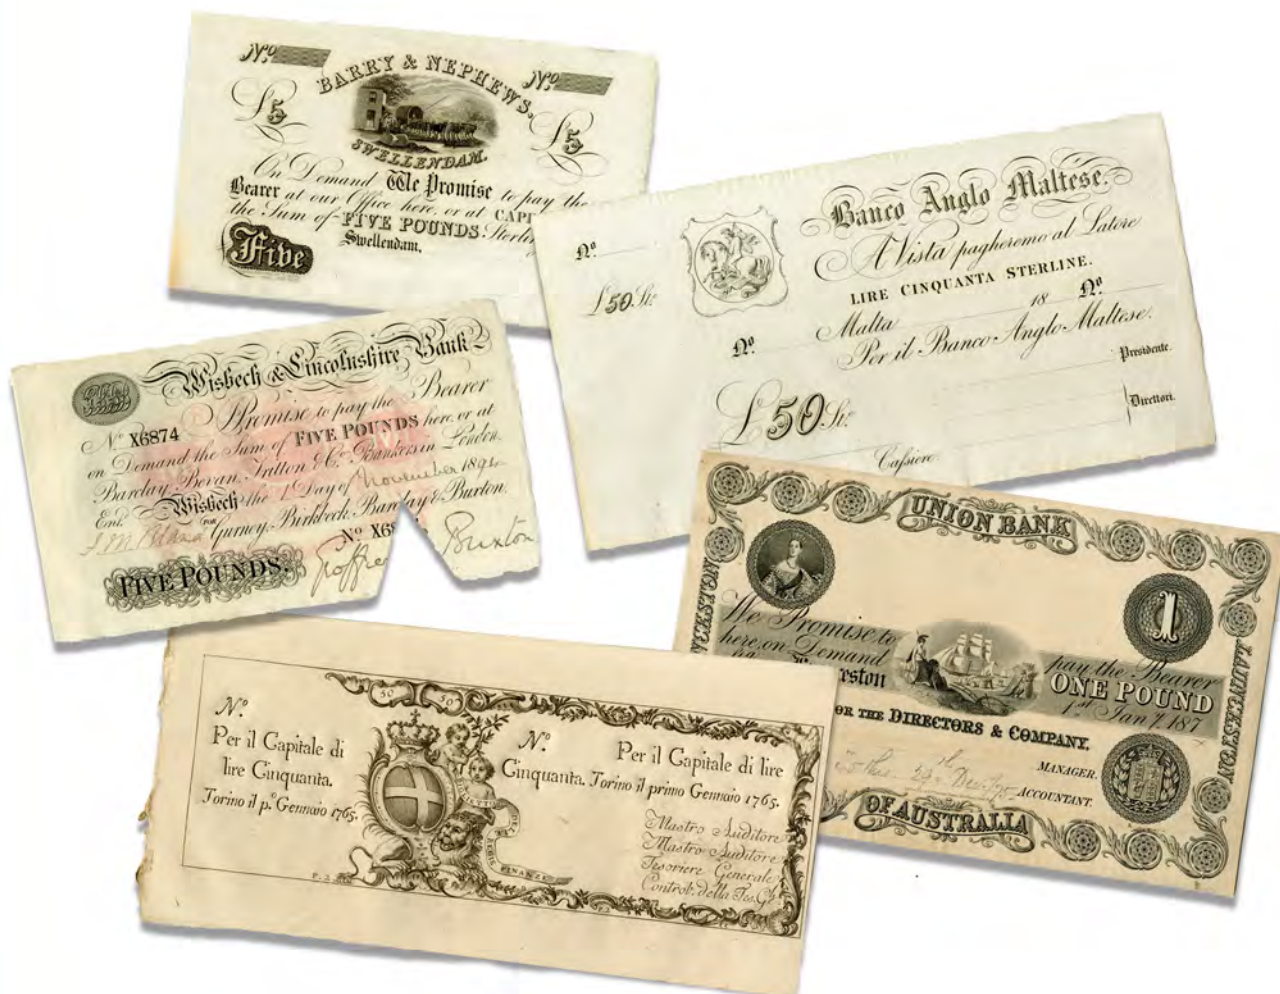 Nº Nº
BARRY & NEPHEWS.
£5 £5
SWELLENDAM.
On Demand We Promise to pay the
Bearer at our Office here, or at
the Sum of FIVE POUNDS
Swellendam,
Five
Banco Anglo Maltese.
Nº
A Vista pagheremo al Latore
£50 St:
LIRE CINQUANTA STERLINE.
Malta 18 Nº
Nº
Per il Banco Anglo Maltese.
Presidente.
Direttori.
£50 St:
Cassiere.
Wisbech & Lincolnshire Bank
Nº X6874 I Promise to pay the Bearer
on Demand the Sum of FIVE POUNDS here or at
Barclay, Bevan, Tritton & Co. Bankers in London.
Wisbech the 1 Day of November 1894
Entd. FOR Gurney, Birkbeck, Barclay & Buxton.
Nº
FIVE POUNDS.
Buxton
UNION BANK
1
LAUNCESTON
We Promise to pay the Bearer
here on Demand ONE POUND
1st Jan y. 187
FOR THE DIRECTORS & COMPANY.
MANAGER.
ACCOUNTANT.
OF AUSTRALIA
50 50
Nº
Per il Capitale di
lire Cinquanta.
Torino il pº Gennaio 1765.
Nº Per il Capitale di lire
Cinquanta. Torino il primo Gennaio 1765.
Mastro Auditore
Mastro Auditore
Tesoriere Generale
FINANZE